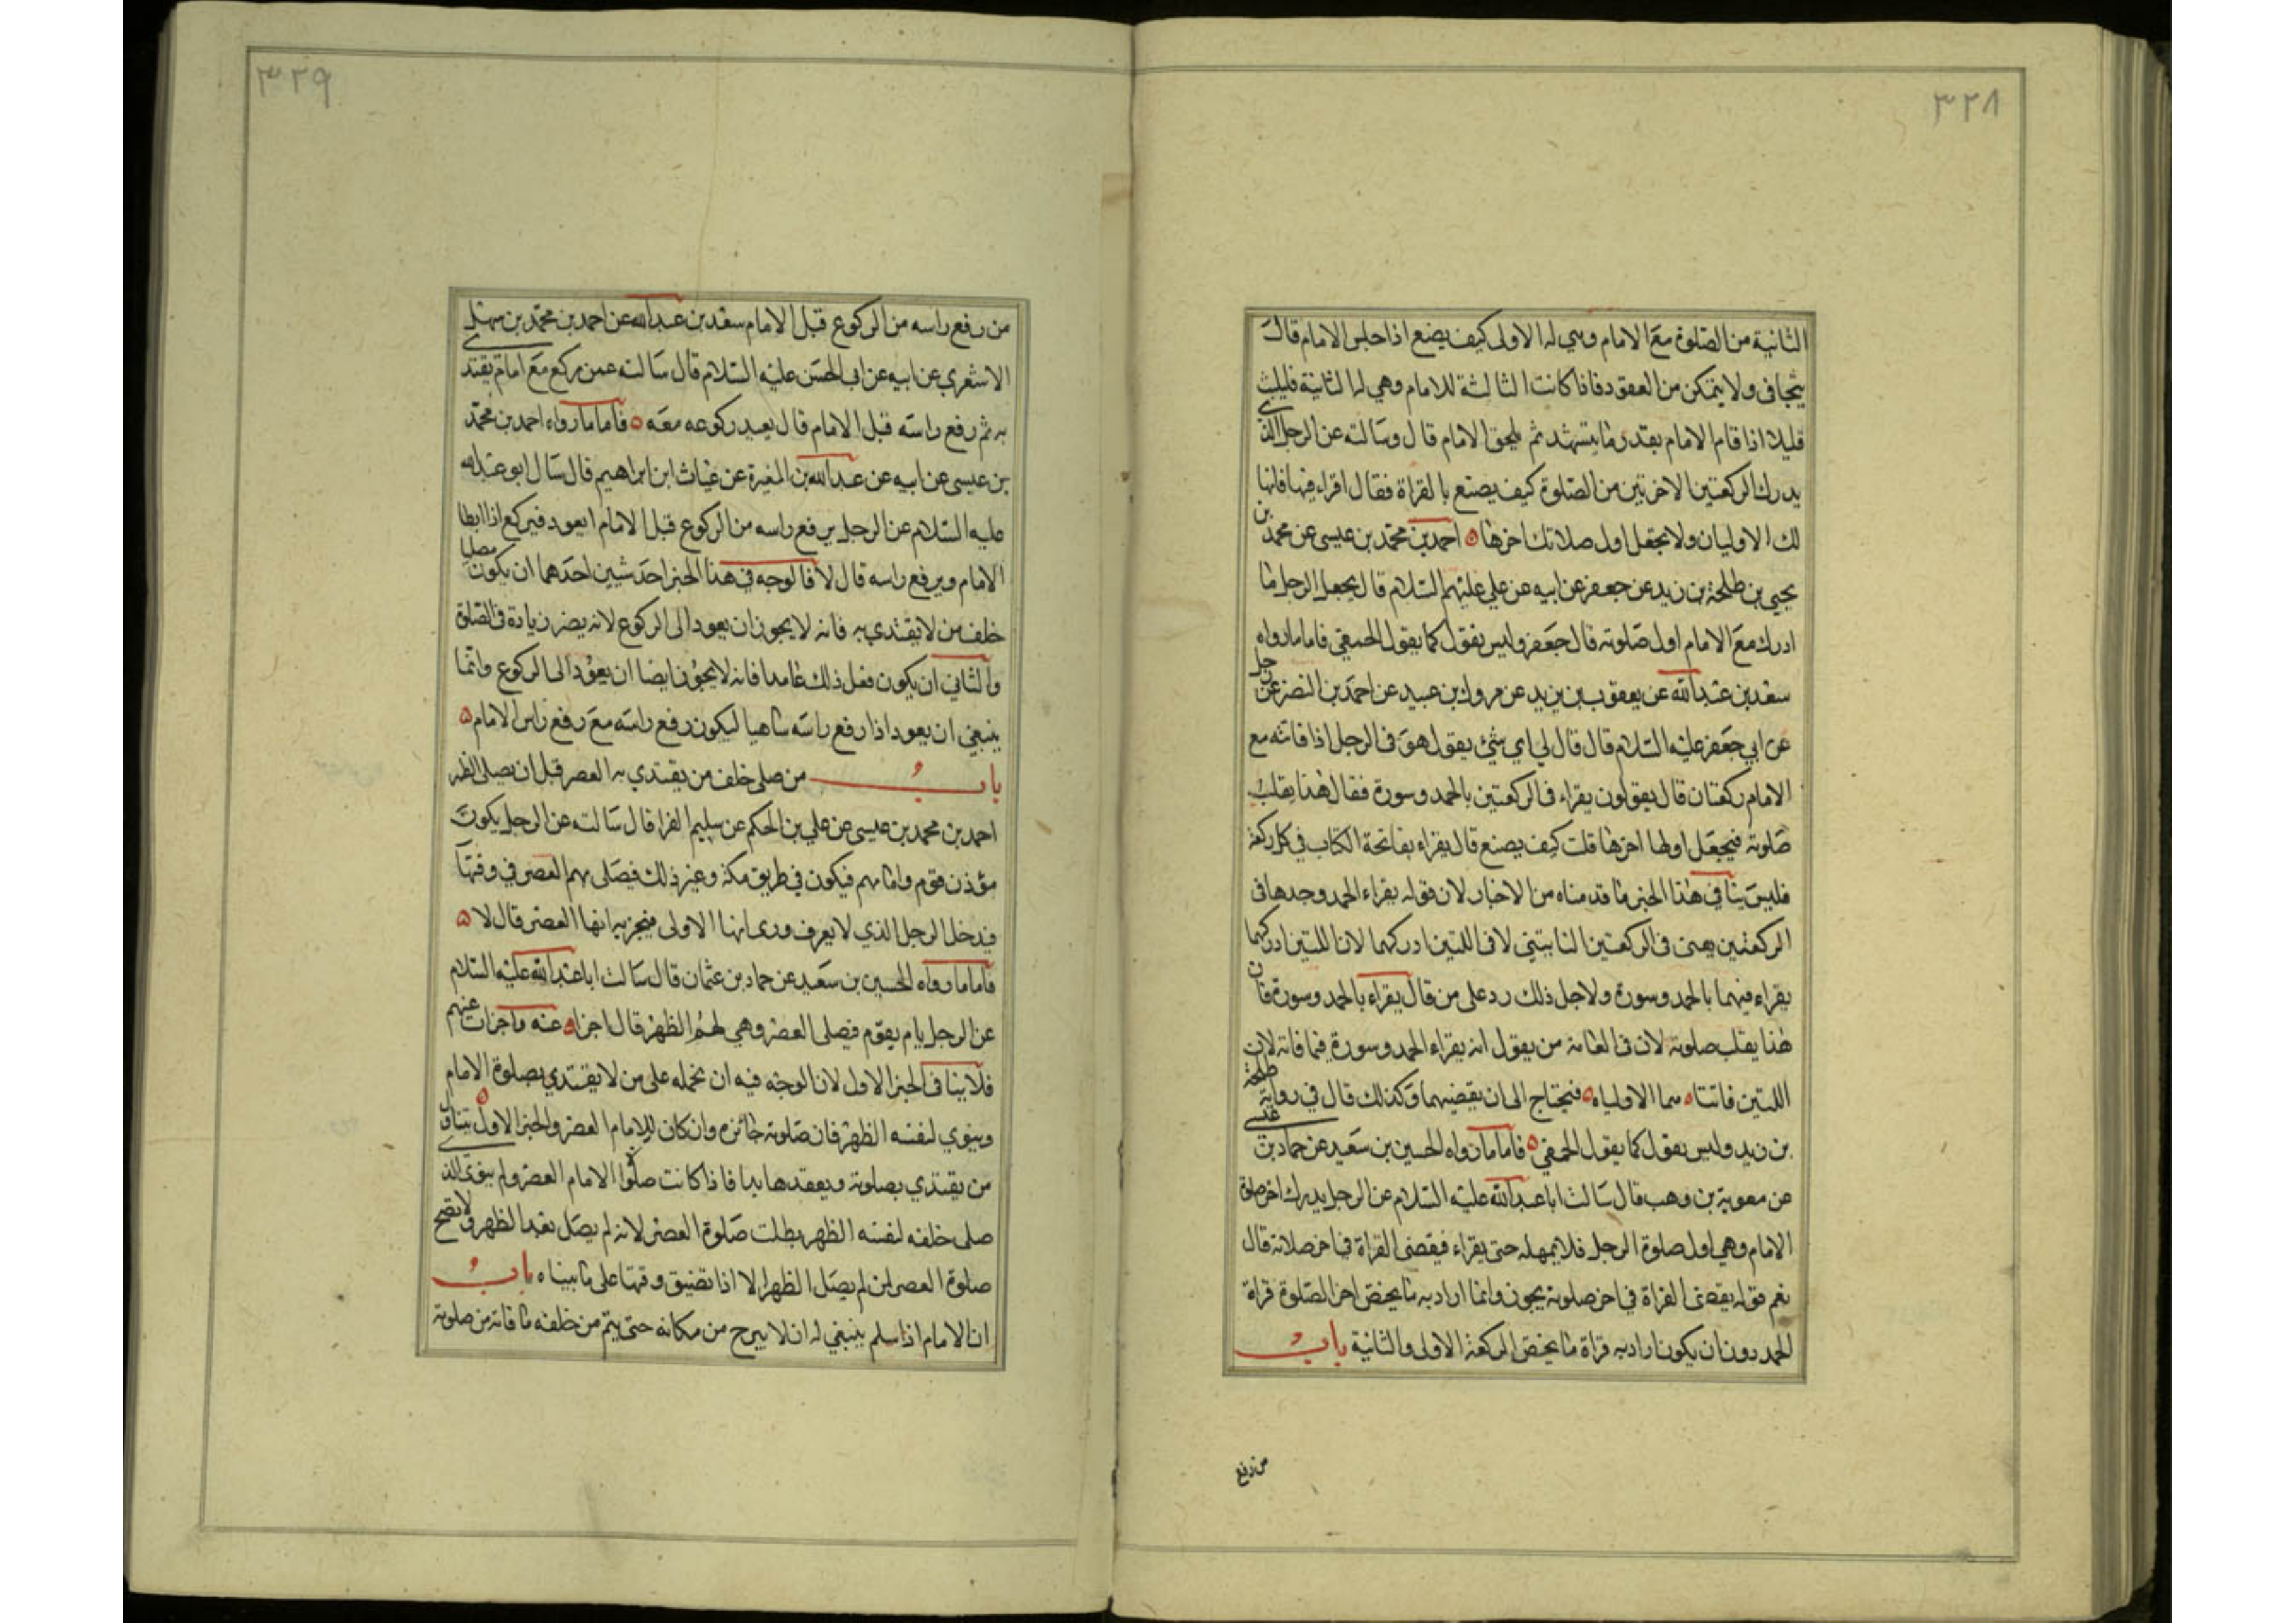 ٣٢٨
الثانية من الصلوة مع الامام وهي له الاولى كيف يصنع اذا جلس الامام قال
يتجافى ولا يتمكن من القعود فاذا كانت الثالثة للامام وهي له الثانية فليلبث
قليلا اذا قام الامام بقدر ما يتشهد ثم يلحق الامام قال وسالته عن الرجل الذي
يدرك الركعتين الاخرتين من الصلوة كيف يصنع بالقراة فقال اقراء فيها فانها
لك الاوليان ولا تجعل اول صلاتك اخرها احمد بن محمد بن عيسى عن محمد بن
يحيى بن طلحة بن زيد عن جعفر عن ابيه عن علي عليهم السلام قال يجعل الرجل ما
ادرك مع الامام اول صلوته قال جعفر وليس نقول كما يقول الحمقى فاما ما رواه
سعد بن عبد الله عن يعقوب بن يزيد عن مروك بن عبيد عن احمد بن النضر عن رجل
عن ابي جعفر عليه السلام قال قال لي اي شئ يقول هؤ في الرجل اذا فاتته مع
الامام ركعتان قال يقولون يقراء في الركعتين بالحمد وسورة فقال هذا يقلب
صلوته فيجعل اولها اخرها قلت كيف يصنع قال يقراء بفاتحة الكتاب في كل ركعة
فليس ينافي هذا الخبر ما قدمناه من الاخبار لان قوله يقراء الحمد وحدها في
الركعتين يعني في الركعتين لا في اللتين ادركهما لان اللتين ادركهما
يقراء فيهما بالحمد وسورة ولاجل ذلك رد على من قال يقراء بالحمد وسورة فان
هذا يقلب صلوته لان في العامة من يقول انه يقراء الحمد وسورة فيما فاته لان
اللتين فاتتاه هما الاولياه فيحتاج الى ان يقضيهما وكذلك قال في رواية طلحة
بن زيد وليس نقول كما يقول الحمقى فاما ما رواه الحسين بن سعيد عن حماد بن عيسى
عن معوية بن وهب قال سالت ابا عبد الله عليه السلام عن الرجل يدرك اخر صلوة
الامام وهي اول صلوة الرجل فلا يمهله حتى يقراء فيقضي القراة في اخر صلاته قال
نعم قوله يقضي القراة في اخر صلوته يجوز وانما اراد به ما يخص اخر الصلوة قراة
الحمد دون ان يكون اراد به قراة ما يخص الركعة الاولى والثانية باب
من رفع
٣٢٩
من رفع راسه من الركوع قبل الامام سعد بن عبد الله عن احمد بن محمد بن سهل
الاشعري عن ابيه عن ابي الحسن عليه السلام قال سالته عمن ركع مع امام يقتدي
به ثم رفع راسه قبل الامام قال يعيد ركوعه معه فاما ما رواه احمد بن محمد
بن عيسى عن ابيه عن عبد الله بن المغيرة عن غياث ابن ابراهيم قال سال ابو عبد الله
عليه السلام عن الرجل يرفع راسه من الركوع قبل الامام ايعود فيركع اذا ابطا
الامام ويرفع راسه قال لا فالوجه في هذا الخبر احد شيين احدهما ان يكون مصليا
خلف من لا يقتدي به فانه لا يجوز ان يعود الى الركوع لانه يصير زيادة في الصلوة
والثاني ان يكون فعل ذلك عامدا فانه لا يجوز ايضا ان يعود الى الركوع وانما
ينبغي ان يعود اذا رفع راسه ساهيا ليكون رفع راسه مع رفع راس الامام
باب من صلى خلف من يقتدي به العصر قبل ان يصلى الظهر
احمد بن محمد بن عيسى عن علي بن الحكم عن سليم الفرا قال سالته عن الرجل يكون
مؤذن قوم وامامهم فيكون في طريق مكة وغير ذلك فيصلى بهم العصر في وقتها
فيدخل الرجل الذي لا يعرف ورى انها الاولى فيجزيه انها العصر قال لا
فاما ما رواه الحسين بن سعيد عن حماد بن عثمان قال سالت ابا عبد الله عليه السلام
عن الرجل يام بقوم فيصلى العصر وهي لهم الظهر قال اجزا عنه واجزات عنهم
فلا ينافي الخبر الاول لان الوجه فيه ان نحمله على من لا يقتدي بصلوة الامام
وينوي لنفسه الظهر فان صلوته جائزه وان كان للامام العصر والخبر الاول يتناول
من يقتدي بصلوته ويعقدها بها فاذا كانت صلوة الامام العصر ولم ينوي الذي
صلى خلفه لنفسه الظهر بطلت صلوة العصر لانه لم يصل بعد الظهر ولا تصح
صلوة العصر لمن لم يصل الظهر الا اذا تضيق وقتها على ما بيناه باب
ان الامام اذا سلم ينبغي له ان لا يبرح من مكانه حتى يتم من خلفه ما فاته من صلوته